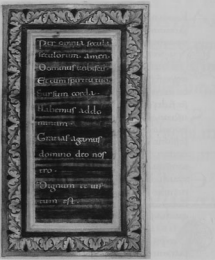 Per omnia secula
seculorum. amen.
Dominus vobiscũ
Et cum spiritu tuo.
Sursum corda
Habemus ad do
minum.
Gratias agamus
domino deo nos
tro.
Dignum et ius
tum est.